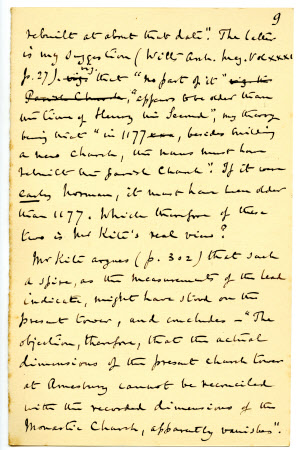 9
rebuilt at about that date". The latter
is my suggestion (Wilts Arch. Mag. Vol XXXI
p. 27). viz that "no part of it"
Parish Church, "appears to be older than
the time of Henry the Second", my theory
being that "in 1177, besides building
a new church, the nuns must have
rebuilt the parish Church". If it were
early Norman, it must have been older
than 1177. Which therefore of these
two is Mr Kite's real view?
Mr Kite argues (p. 302) that such
a spire, as the measurements of the lead
indicate, might have stood on the
present tower, and concludes — "The
objection, therefore, that the actual
dimensions of the present church tower
at Amesbury cannot be reconciled
with the recorded dimensions of the
Monastic Church, apparently vanishes".